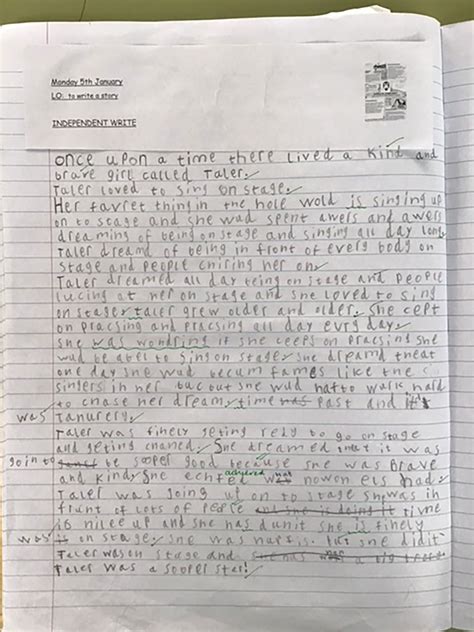 Monday 5th January
LO: to write a story
INDEPENDENT WRITE
once upon a time there lived a kind and
brave girl called Taler.
Taler loved to sing on stage.
Her favret thing in the hole wold is singing up
on to stage and she wud spent awers and awers
dreaming of being on stage and singing all day long.
Taler dreamd of being in front of every body on
stage and people chiring her on.
Taler dreamed all day being on stage and people
lucing at her on stage and she loved to sing
on stage. taler grew older and older. She cept
on pracsing and pracsing all day evry day.
She was wondring if she ceeps on pracsing she
wud be abel to sing on stage. She dreamd theat
one day she wud becum fames like the
singers in her but she wud hatto walk hard
to chase her dream. time has past and it's
was Tanurery.
Taler was finely geting redy to go on stage
and geting chaned. She dreamed that it was
goin to be sooper good because she was brave
and kind. She achieved wat nowon els had.
Taler was going up on to stage she was in
frunt of lots of peple but she is doing it time
is nilee up and she has dunit she is finely
was on stage. she was narfis. but she did it
Taler was on stage and she has a big
Taler was a sooper star!